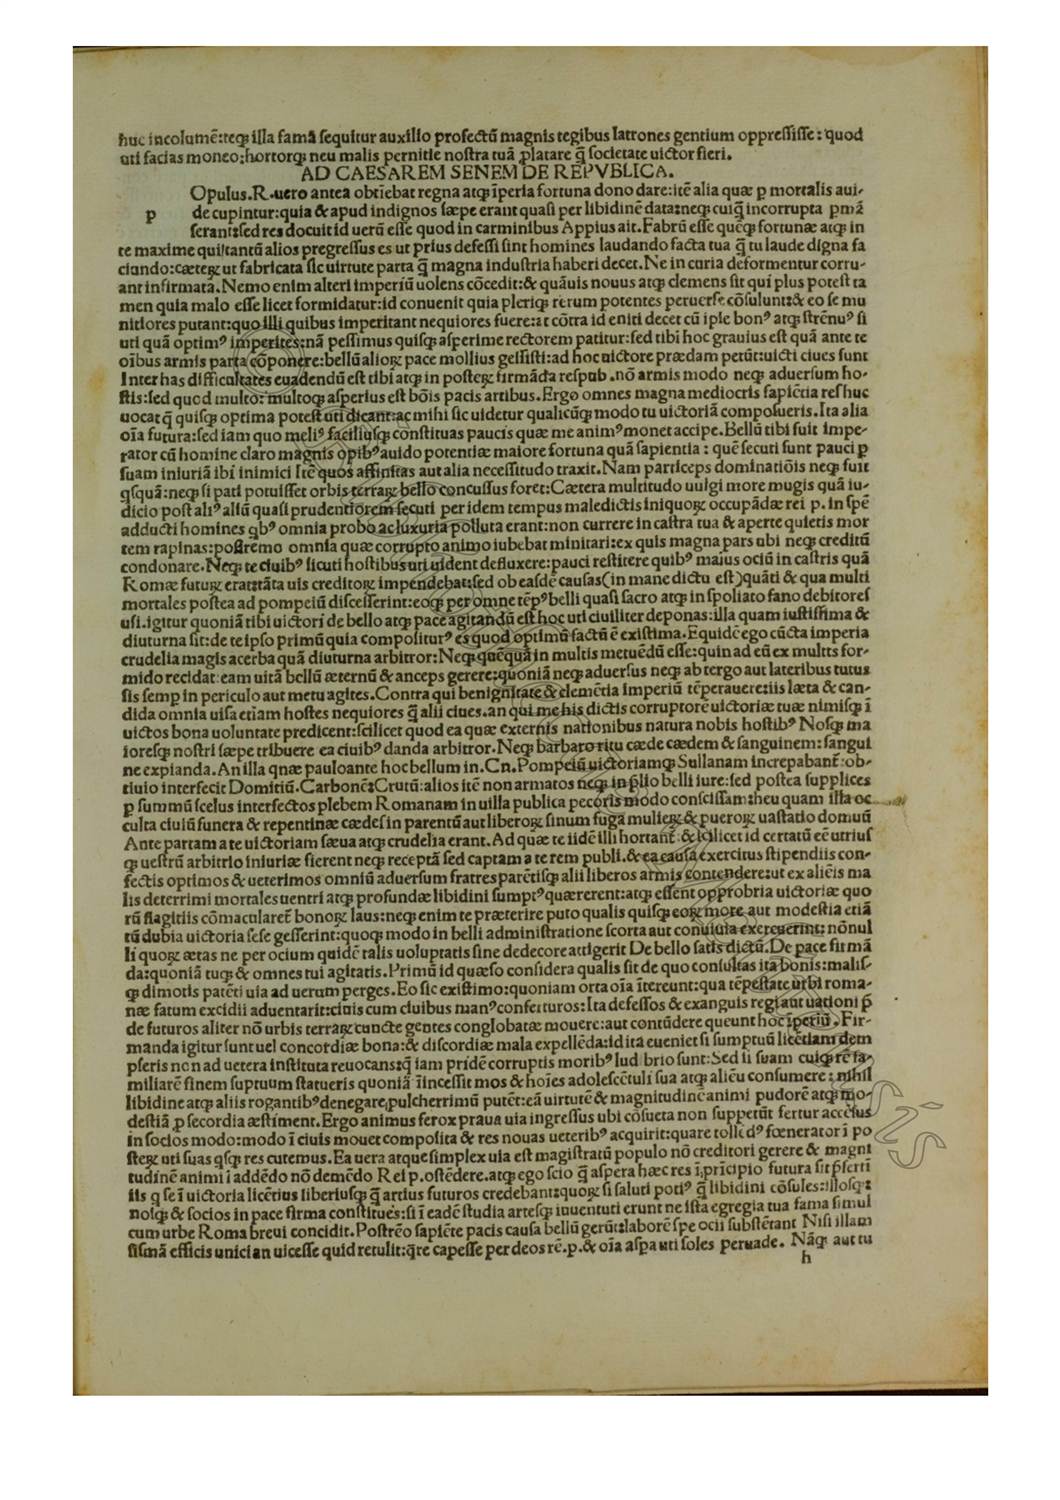 huc incolumē:teqꝫ illa famā ſequitur auxilio profectū magnis regibus latrones gentium oppreſſiſſe: quod
uti facias moneo:hortorqꝫ neu malis pernitie noſtra tuā ꝓlatare q̄ ſocietate uictor fieri.
AD CAESAREM SENEM DE REPVBLICA.
Opulus.R.uero antea obtīebat regna atqꝫ īperia fortuna dono dare:itē alia quæ ꝑ mortalis aui-
p decupintur:quia & apud indignos ſæpe erant quaſi per libidinē data:neqꝫ cuiq̄ incorrupta ꝑmā
ſerant:sed res docuit id uerū eſſe quod in carminibus Appius ait.Fabrū eſſe quēqꝫ fortunæ atqꝫ in
te maxime qui:tantū alios pregreſſus es ut prius defeſſi ſint homines laudando facta tua q̄ tu laude digna fa
ciundo:cæteꝝ ut fabricata ſic uirtute parta q̄ magna induſtria haberi decet.Ne in curia deformentur corru-
ant infirmata.Nemo enim alteri imperiū uolens cōcedit:& quāuis nouus atqꝫ clemens ſit qui plus poteſt ta
men quia malo eſſe licet formidatur:id conuenit quia pleriqꝫ rerum potentes peruerſe cōſulunt:& eo ſe mu
nitiores putant:quo illi quibus imperitant nequiores fuere:at cōtra id eniti decet cū ipſe bonꝰ atqꝫ ſtrēnuꝰ ſi
uti quā optimꝰ imperites:nā peſſimus quiſqꝫ aſperime rectorem patitur:sed tibi hoc grauius eſt quā ante te
oībus armis parta cōponere:bellū alioꝝ pace mollius geſſiſti:ad hoc uictore prædam petūt:uicti ciues ſunt
Inter has difficultates euadendū eſt tibi atqꝫ in poſteꝝ firmāda reſpub.nō armis modo neqꝫ aduerſum ho-
ſtis:sed quod multo:multoqꝫ aſperius eſt bōis pacis artibus.Ergo omnes magna mediocris ſapiētia reſ huc
uocat q̄ quiſqꝫ optima poteſt uti dicant:ac mihi ſic uidetur qualicūqꝫ modo tu uictoriā compoſueris.Ita alia
oīa futura:sed iam quo meliꝰ faciliuſqꝫ conſtituas paucis quæ me animꝰ monet accipe.Bellū tibi fuit impe-
rator cū homine claro magnis opibꝰ auido potentiæ maiore fortuna quā ſapientia : quē ſecuti ſunt pauci ꝑ
ſuam iniuriā ibi inimici Itē quos affinitas aut alia neceſſitudo traxit.Nam particeps dominatiōis neqꝫ fuit
qſquā:neqꝫ ſi pati potuiſſet orbis terraꝝ bello concuſſus foret:Cætera multitudo uulgi more mugis quā iu-
dicio poſt aliꝰ aliū quaſi prudentiorem ſecuti per idem tempus maledictis iniquoꝝ occupādæ rei p.in ſpē
adducti homines qbꝰ omnia probo ac luxuria polluta erant:non currere in caſtra tua & aperte quietis mor
tem rapinas:poſtremo omnia quæ corrupto animo iubebat minitari:ex quis magna pars ubi neqꝫ creditū
condonare.Neqꝫ te ciuibꝰ ſicuti hoſtibus uti uident defluxere:pauci reſtitere quibꝰ maius ociū in caſtris quā
Romæ futuꝝ erat:tāta uis creditoꝝ impendebat:sed ob eaſdē cauſas(in mane dictu eſt)quāti & qua multi
mortales poſtea ad pompeiū diſceſſerint:eoqꝫ per omne tēpꝰ belli quaſi ſacro atqꝫ in ſpoliato fano debitoreſ
uſi.igitur quoniā tibi uictori de bello atqꝫ pace agitandū eſt hoc uti ciuiliter deponas:illa quam iuſtiſſima &
diuturna ſit:de te ipſo primū quia compoſiturꝰ es quod optimū factū ē exiſtima.Equidē ego cūcta imperia
crudelia magis acerba quā diuturna arbitror:Neqꝫ quēquā in multis metuēdū eſſe:quin ad eū ex multis for-
mido recidat:eam uitā bellū æternū & anceps gerere:quoniā neqꝫ aduerſus neqꝫ ab tergo aut lateribus tutus
ſis ſemp in periculo aut metu agites.Contra qui benignitate & clemētia imperiū tēperauere:iis læta & can-
dida omnia uiſa etiam hoſtes nequiores q̄ alii ciues.an qui me his dictis corruptorē uictoriæ tuæ nimiſqꝫ ī
uictos bona uoluntate predicent:ſcilicet quod ea quæ externis nationibus natura nobis hoſtibꝰ Noſqꝫ ma
ioreſqꝫ noſtri ſæpe tribuere ea ciuibꝰ danda arbitror.Neqꝫ barbaro ritu cæde cædem & ſanguinem:ſangui
ne expianda.An illa quæ pauloante hoc bellum in.Cn.Pompeiū uictoriamqꝫ Sullanam increpabant:ob-
tiuio interfecit Domitiū.Carbonē:Crutū:alios itē non armatos neqꝫ in ꝓlio belli iure:sed poſtea ſupplices
ꝑ ſummū ſcelus interfectos plebem Romanam in uilla publica pecoris modo conſciſſam:heu quam illa oc
culta ciuiū funera & repentinæ cædeſ in parentū aut liberoꝝ ſinum fuga mulieꝝ & pueroꝝ uaſtatio domuū
Ante partam a te uictoriam ſæua atqꝫ crudelia erant.Ad quæ te iidē illi hortant̄:& ſcilicet id certatū eē utriuſ
qꝫ ueſtrū arbitrio iniuriæ fierent neqꝫ receptā ſed captam a te rem publi.& ea cauſa exercitus ſtipendiis con-
fectis optimos & ueterimos omniū aduerſum fratres parētiſqꝫ alii liberos armis contendere:ut ex aliēis ma
lis deterrimi mortales uentri atqꝫ profundæ libidini ſumptꝰ quærerent:atqꝫ eſſent opprobria uictoriæ quo
rū flagitiis cōmacularet̄ bonoꝝ laus:neqꝫ enim te præterire puto qualis quiſqꝫ eoꝝ more aut modeſtia etiā
tū dubia uictoria ſeſe geſſerint:quoqꝫ modo in belli adminiſtratione ſcorta aut conuiuia exercuerint: nōnul
li quoꝝ ætas ne per ocium quidē talis uoluptatis ſine dedecore attigerit De bello ſatis dictū.De pace firmā
da:quoniā tuqꝫ & omnes tui agitatis.Primū id quæſo conſidera qualis ſit de quo conſultas ita bonis:maliſ-
qꝫ dimotis patēti uia ad uerum perges.Eo ſic exiſtimo:quoniam orta oīa ītereunt:qua tēpeſtate urbi roma-
næ fatum excidii aduentarit:ciuis cum ciuibus manꝰ conſerturos:Ita defeſſos & exanguis regi aut nationi p̄
de futuros aliter nō urbis terraꝝ cuncte gentes conglobatæ mouere:aut contūdere queunt hoc īperiū.Fir-
manda igitur ſunt uel concordiæ bona:& diſcordiæ mala expellēda:id ita eueniet ſi ſumptuū licētiam dem
pſeris non ad uetera inſtituta reuocans:q̄ iam pridē corruptis moribꝰ ludibrio ſunt:Sed ſi ſuam cuiqꝫ rē fa-
miliarē finem ſuptuum ſtatueris quoniā īinceſſit mos & hoīes adoleſcētuli ſua atqꝫ aliēu conſumere: nihil
libidine atqꝫ aliis rogantibꝰ denegare,pulcherrimū putēt:eā uirtutē & magnitudinē animi pudorē atqꝫ mo-
deſtiā ꝑ ſecordia æſtiment.Ergo animus ferox praua uia ingreſſus ubi cōſueta non ſuppetūt fertur accēſus
in ſocios modo:modo ī ciuis mouet compoſita & res nouas ueteribꝰ acquirit:quare tollēdꝰ fœnerator ī po
ſteꝝ uti ſuas qſqꝫ res curemus.Ea uera atque ſimplex uia eſt magiſtratū populo nō creditori gerere & magni
tudinē animi ī addēdo nō demēdo Rei p.oſtēdere.atqꝫ ego ſcio q̄ aſpera hæc res ī pricipio futura ſit p̄ſerti
iis q ſe ī uictoria licētius liberiuſqꝫ q̄ artius futuros credebant:quoꝝ ſi ſaluti potiꝰ q̄ libidini cōſules:illoſqꝫ:
noſqꝫ & ſocios in pace firma conſtitues:ſi ī eadē ſtudia arteſqꝫ iuuentuti erunt ne iſta egregia tua fama ſimul
cum urbe Roma breui concidit.Poſtrēo ſapiēte pacis cauſa bellū gerūt:laborē ſpe ocii ſubſtētant Niſi illam
ſiſmā efficis unici an uiceſſe quid retulit:q̄re capeſſe per deos rē.p.& oīa aſpa uti ſoles peruade. Nāqꝫ aut tu
h